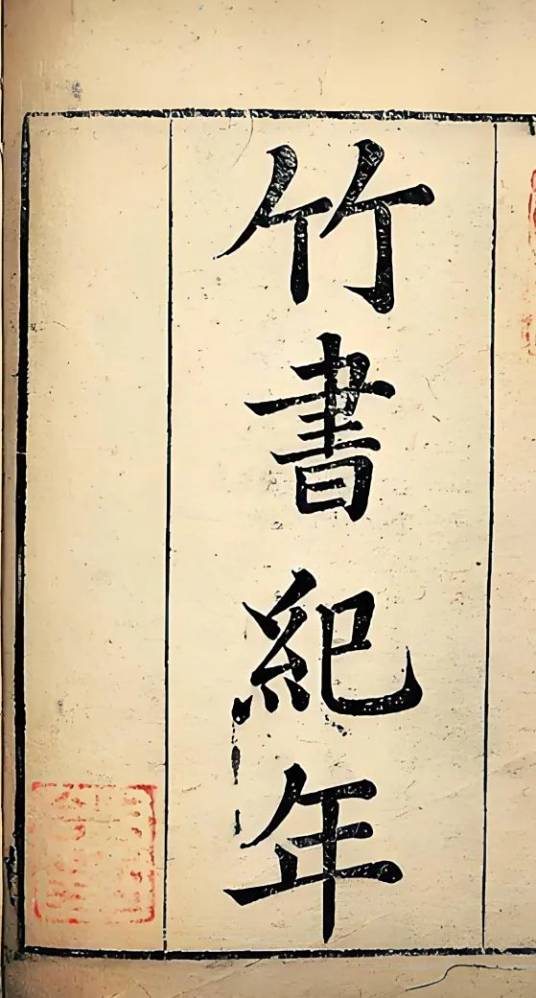 竹書紀年